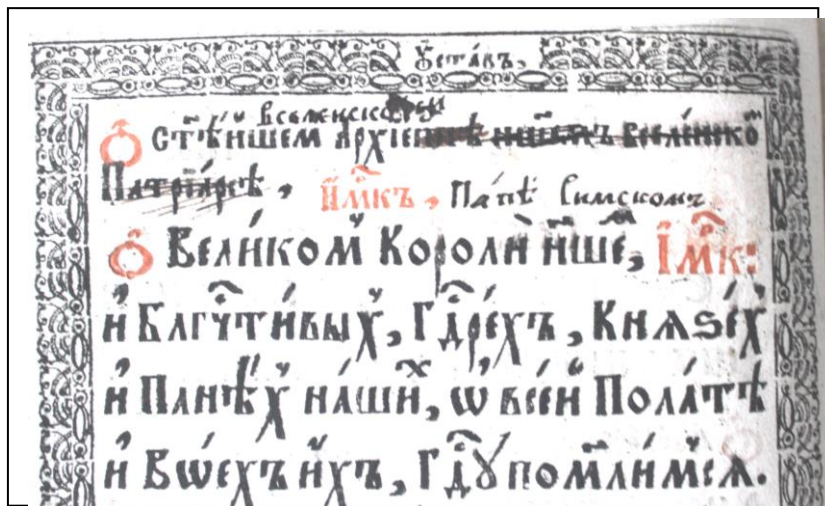 Ѹста́въ,
вселенско
Ѽ ст҃ѣ́йшем Архїеп
Патрїа́рсѣ, и҆́м҃къ, Па́пѣ Римскомꙋ
Ѽ Вели́ком Короли н҃ше, І҆́м҃к:
и҆ Благⷱ҇ти́выхъ, Гдⷭ҇рехъ, Кнѧѕе́х
и҆ Панѣ́х на́ших, ѡ҆ всей Пола́тѣ
и҆ Вѡ́ехъ и҆́хъ, Гдⷭ҇ꙋ пом҃ли́мсѧ.